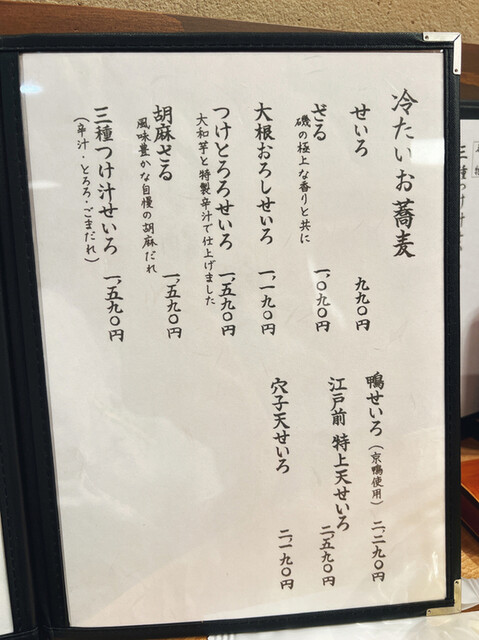 冷たいお蕎麦
せいろ 九九〇円
ざる 一、〇九〇円
磯の極上な香りと共に
大根おろしせいろ 一、一九〇円
つけとろろせいろ 一、五九〇円
大和芋と特製辛汁で仕上げました
胡麻ざる 一、五九〇円
風味豊かな自慢の胡麻だれ
三種つけ汁せいろ 一、五九〇円
（辛汁・とろろ・ごまだれ）
鴨せいろ（京鴨使用） 二、二九〇円
江戸前 特上天せいろ 二、五九〇円
穴子天せいろ 二、一九〇円